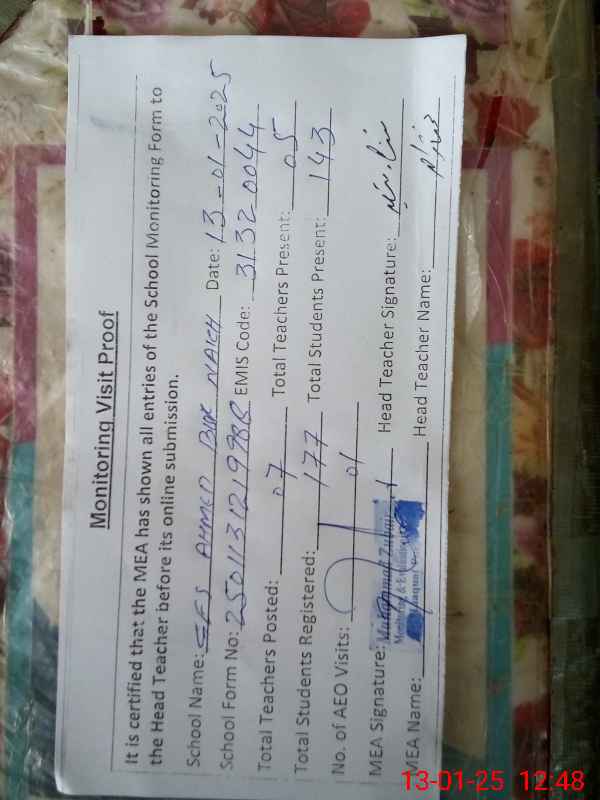 Monitoring Visit Proof
It is certified that the MEA has shown all entries of the School Monitoring Form to
the Head Teacher before its online submission.
School Name: AHMED Date: 13-01-2025
School Form No: EMIS Code: 31320044
Total Teachers Posted: 07 Total Teachers Present: 05
Total Students Registered: 177 Total Students Present: 143
No. of AEO Visits: 01
MEA Signature: Head Teacher Signature:
Monitoring &
MEA Name: Head Teacher Name:
13-01-25 12:48